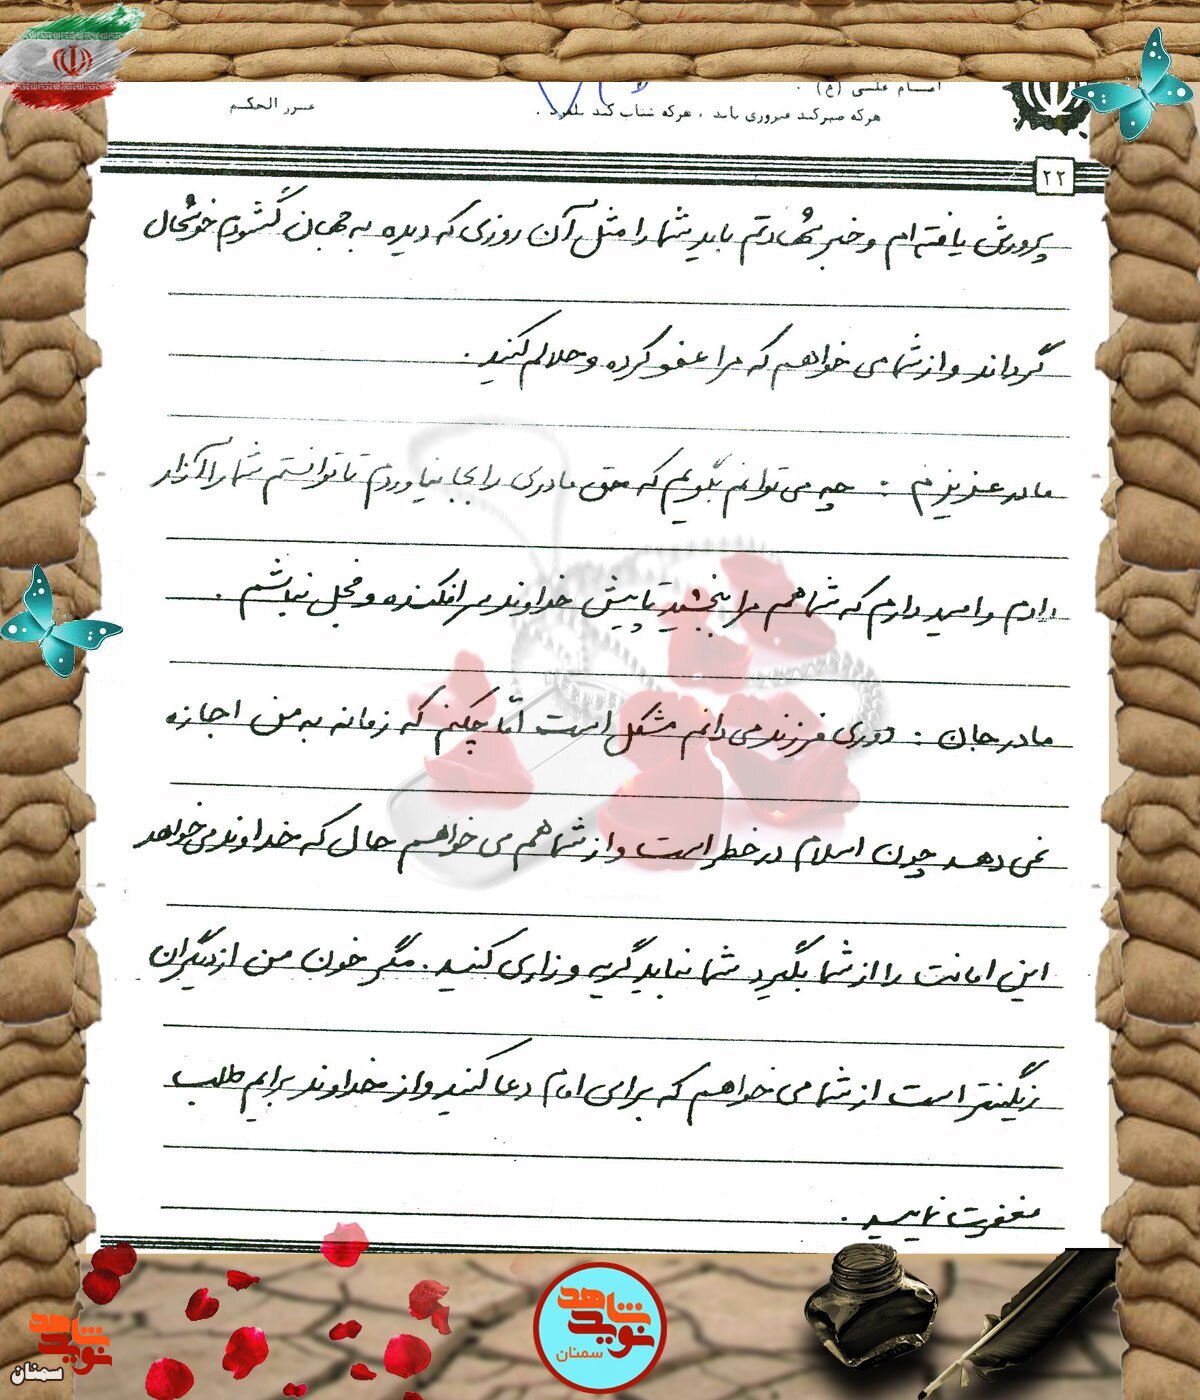 امام علی (ع) .
هرکه صبر کند فیروزی یابد ، هرکه شتاب کند بلغزد .
غرر الحکم
۲۲
پرورش یافته ام و خبر شهادتم باید شما را مثل آن روزی که دیده به جهان گشودم خوشحال
گرداند و از شما می خواهم که مرا عفو کرده و حلالم کنید .
مادر عزیزم : چه می توانم بگویم که حق مادری را بجا نیاوردم تا توانستم شما را آزار
دادم و امید دارم که شما هم مرا ببخشید تا پیش خداوند سرافکنده و خجل نباشم .
مادر جان : دوری فرزند می دانم مشکل است امّا چکنم که زمانه به من اجازه
نمی دهد چون اسلام در خطر است و از شما هم می خواهم حال که خداوند می خواهد
این امانت را از شما بگیرد شما نباید گریه و زاری کنید . مگر خون من از دیگران
رنگینتر است از شما می خواهم که برای امام دعا کنید و از خداوند برایم طلب
مغفرت نمایید .
نوید شاهد
سمنان
نوید شاهد
سمنان